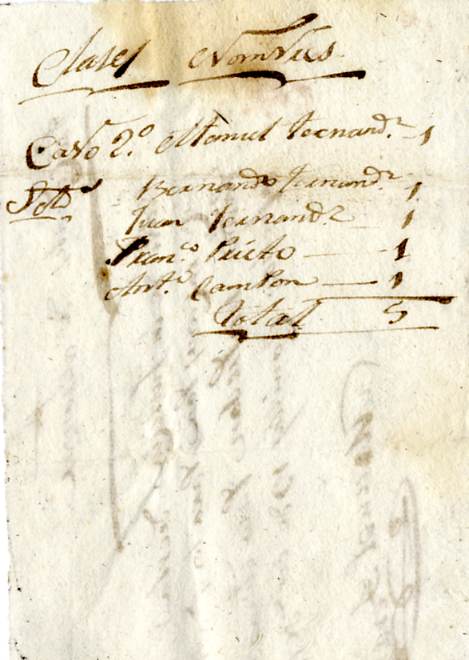 Clases Nombres
Cavo 2.º Manuel Fernand.z 1
Sold.s Bernardo Fernand.z 1
Juan Fernand.z 1
Fran.co Prieto — 1
Ant.º Campon — 1
Total 5